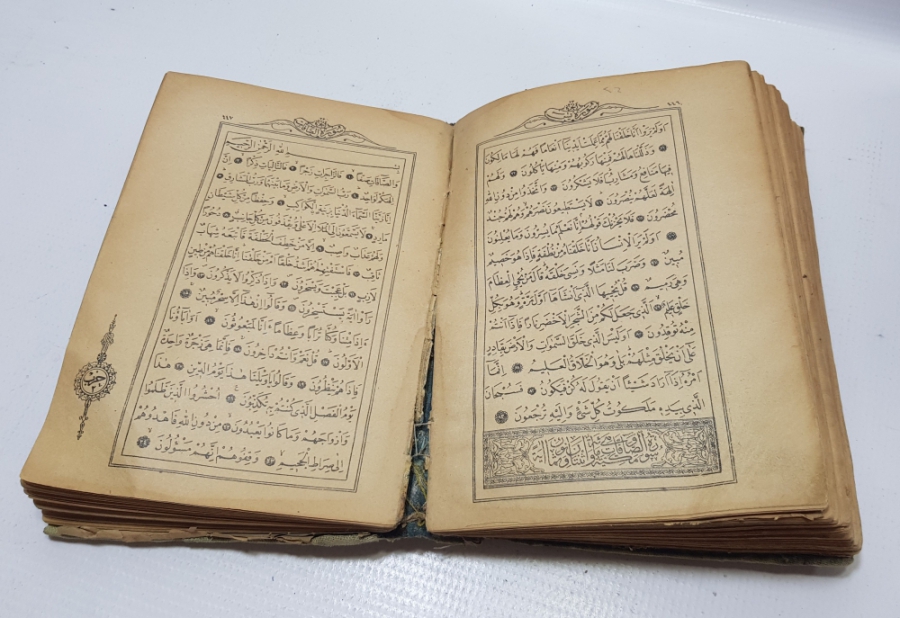 اَوَلَمْ يَرَوْا اَنَّا خَلَقْنَا لَهُمْ مِمَّا عَمِلَتْ اَيْدِينَا اَنْعَامًا فَهُمْ لَهَا مَالِكُونَ
وَذَلَّلْنَاهَا لَهُمْ فَمِنْهَا رَكُوبُهُمْ وَمِنْهَا يَأْكُلُونَ وَلَهُمْ
فِيهَا مَنَافِعُ وَمَشَارِبُ اَفَلَا يَشْكُرُونَ وَاتَّخَذُوا مِنْ دُونِ اللهِ
اٰلِهَةً لَعَلَّهُمْ يُنْصَرُونَ لَا يَسْتَطِيعُونَ نَصْرَهُمْ وَهُمْ لَهُمْ جُنْدٌ
مُحْضَرُونَ فَلَا يَحْزُنْكَ قَوْلُهُمْ اِنَّا نَعْلَمُ مَا يُسِرُّونَ وَمَا يُعْلِنُونَ
اَوَلَمْ يَرَ الْاِنْسَانُ اَنَّا خَلَقْنَاهُ مِنْ نُطْفَةٍ فَاِذَا هُوَ خَصِيمٌ
مُبِينٌ وَضَرَبَ لَنَا مَثَلًا وَنَسِيَ خَلْقَهُ قَالَ مَنْ يُحْيِي الْعِظَامَ
وَهِيَ رَمِيمٌ قُلْ يُحْيِيهَا الَّذِي اَنْشَاَهَا اَوَّلَ مَرَّةٍ وَهُوَ بِكُلِّ
خَلْقٍ عَلِيمٌ الَّذِي جَعَلَ لَكُمْ مِنَ الشَّجَرِ الْاَخْضَرِ نَارًا فَاِذَا اَنْتُمْ
مِنْهُ تُوقِدُونَ اَوَلَيْسَ الَّذِي خَلَقَ السَّمٰوَاتِ وَالْاَرْضَ بِقَادِرٍ
عَلٰى اَنْ يَخْلُقَ مِثْلَهُمْ بَلٰى وَهُوَ الْخَلَّاقُ الْعَلِيمُ اِنَّمَا
اَمْرُهُ اِذَا اَرَادَ شَيْئًا اَنْ يَقُولَ لَهُ كُنْ فَيَكُونُ فَسُبْحَانَ
الَّذِي بِيَدِهِ مَلَكُوتُ كُلِّ شَيْءٍ وَاِلَيْهِ تُرْجَعُونَ
سورة الصافات
بِسْمِ اللهِ الرَّحْمٰنِ الرَّحِيمِ
وَالصَّافَّاتِ صَفًّا فَالزَّاجِرَاتِ زَجْرًا فَالتَّالِيَاتِ ذِكْرًا اِنَّ
اِلٰهَكُمْ لَوَاحِدٌ رَبُّ السَّمٰوَاتِ وَالْاَرْضِ وَمَا بَيْنَهُمَا وَرَبُّ الْمَشَارِقِ
اِنَّا زَيَّنَّا السَّمَاءَ الدُّنْيَا بِزِينَةٍ الْكَوَاكِبِ وَحِفْظًا مِنْ كُلِّ شَيْطَانٍ
مَارِدٍ لَا يَسَّمَّعُونَ اِلَى الْمَلَاِ الْاَعْلٰى وَيُقْذَفُونَ مِنْ كُلِّ جَانِبٍ دُحُورًا
وَلَهُمْ عَذَابٌ وَاصِبٌ اِلَّا مَنْ خَطِفَ الْخَطْفَةَ فَاَتْبَعَهُ شِهَابٌ
ثَاقِبٌ فَاسْتَفْتِهِمْ اَهُمْ اَشَدُّ خَلْقًا اَمْ مَنْ خَلَقْنَا اِنَّا خَلَقْنَاهُمْ مِنْ طِينٍ
لَازِبٍ بَلْ عَجِبْتَ وَيَسْخَرُونَ وَاِذَا ذُكِّرُوا لَا يَذْكُرُونَ وَاِذَا
رَاَوْا اٰيَةً يَسْتَسْخِرُونَ وَقَالُوا اِنْ هٰذَا اِلَّا سِحْرٌ مُبِينٌ
ءَاِذَا مِتْنَا وَكُنَّا تُرَابًا وَعِظَامًا ءَاِنَّا لَمَبْعُوثُونَ اَوَاٰبَاؤُنَا
الْاَوَّلُونَ قُلْ نَعَمْ وَاَنْتُمْ دَاخِرُونَ فَاِنَّمَا هِيَ زَجْرَةٌ وَاحِدَةٌ
فَاِذَا هُمْ يَنْظُرُونَ وَقَالُوا يَا وَيْلَنَا هٰذَا يَوْمُ الدِّينِ هٰذَا
يَوْمُ الْفَصْلِ الَّذِي كُنْتُمْ بِهِ تُكَذِّبُونَ اُحْشُرُوا الَّذِينَ ظَلَمُوا
وَاَزْوَاجَهُمْ وَمَا كَانُوا يَعْبُدُونَ مِنْ دُونِ اللهِ فَاهْدُوهُمْ
اِلٰى صِرَاطِ الْجَحِيمِ وَقِفُوهُمْ اِنَّهُمْ مَسْؤُلُونَ
حزب